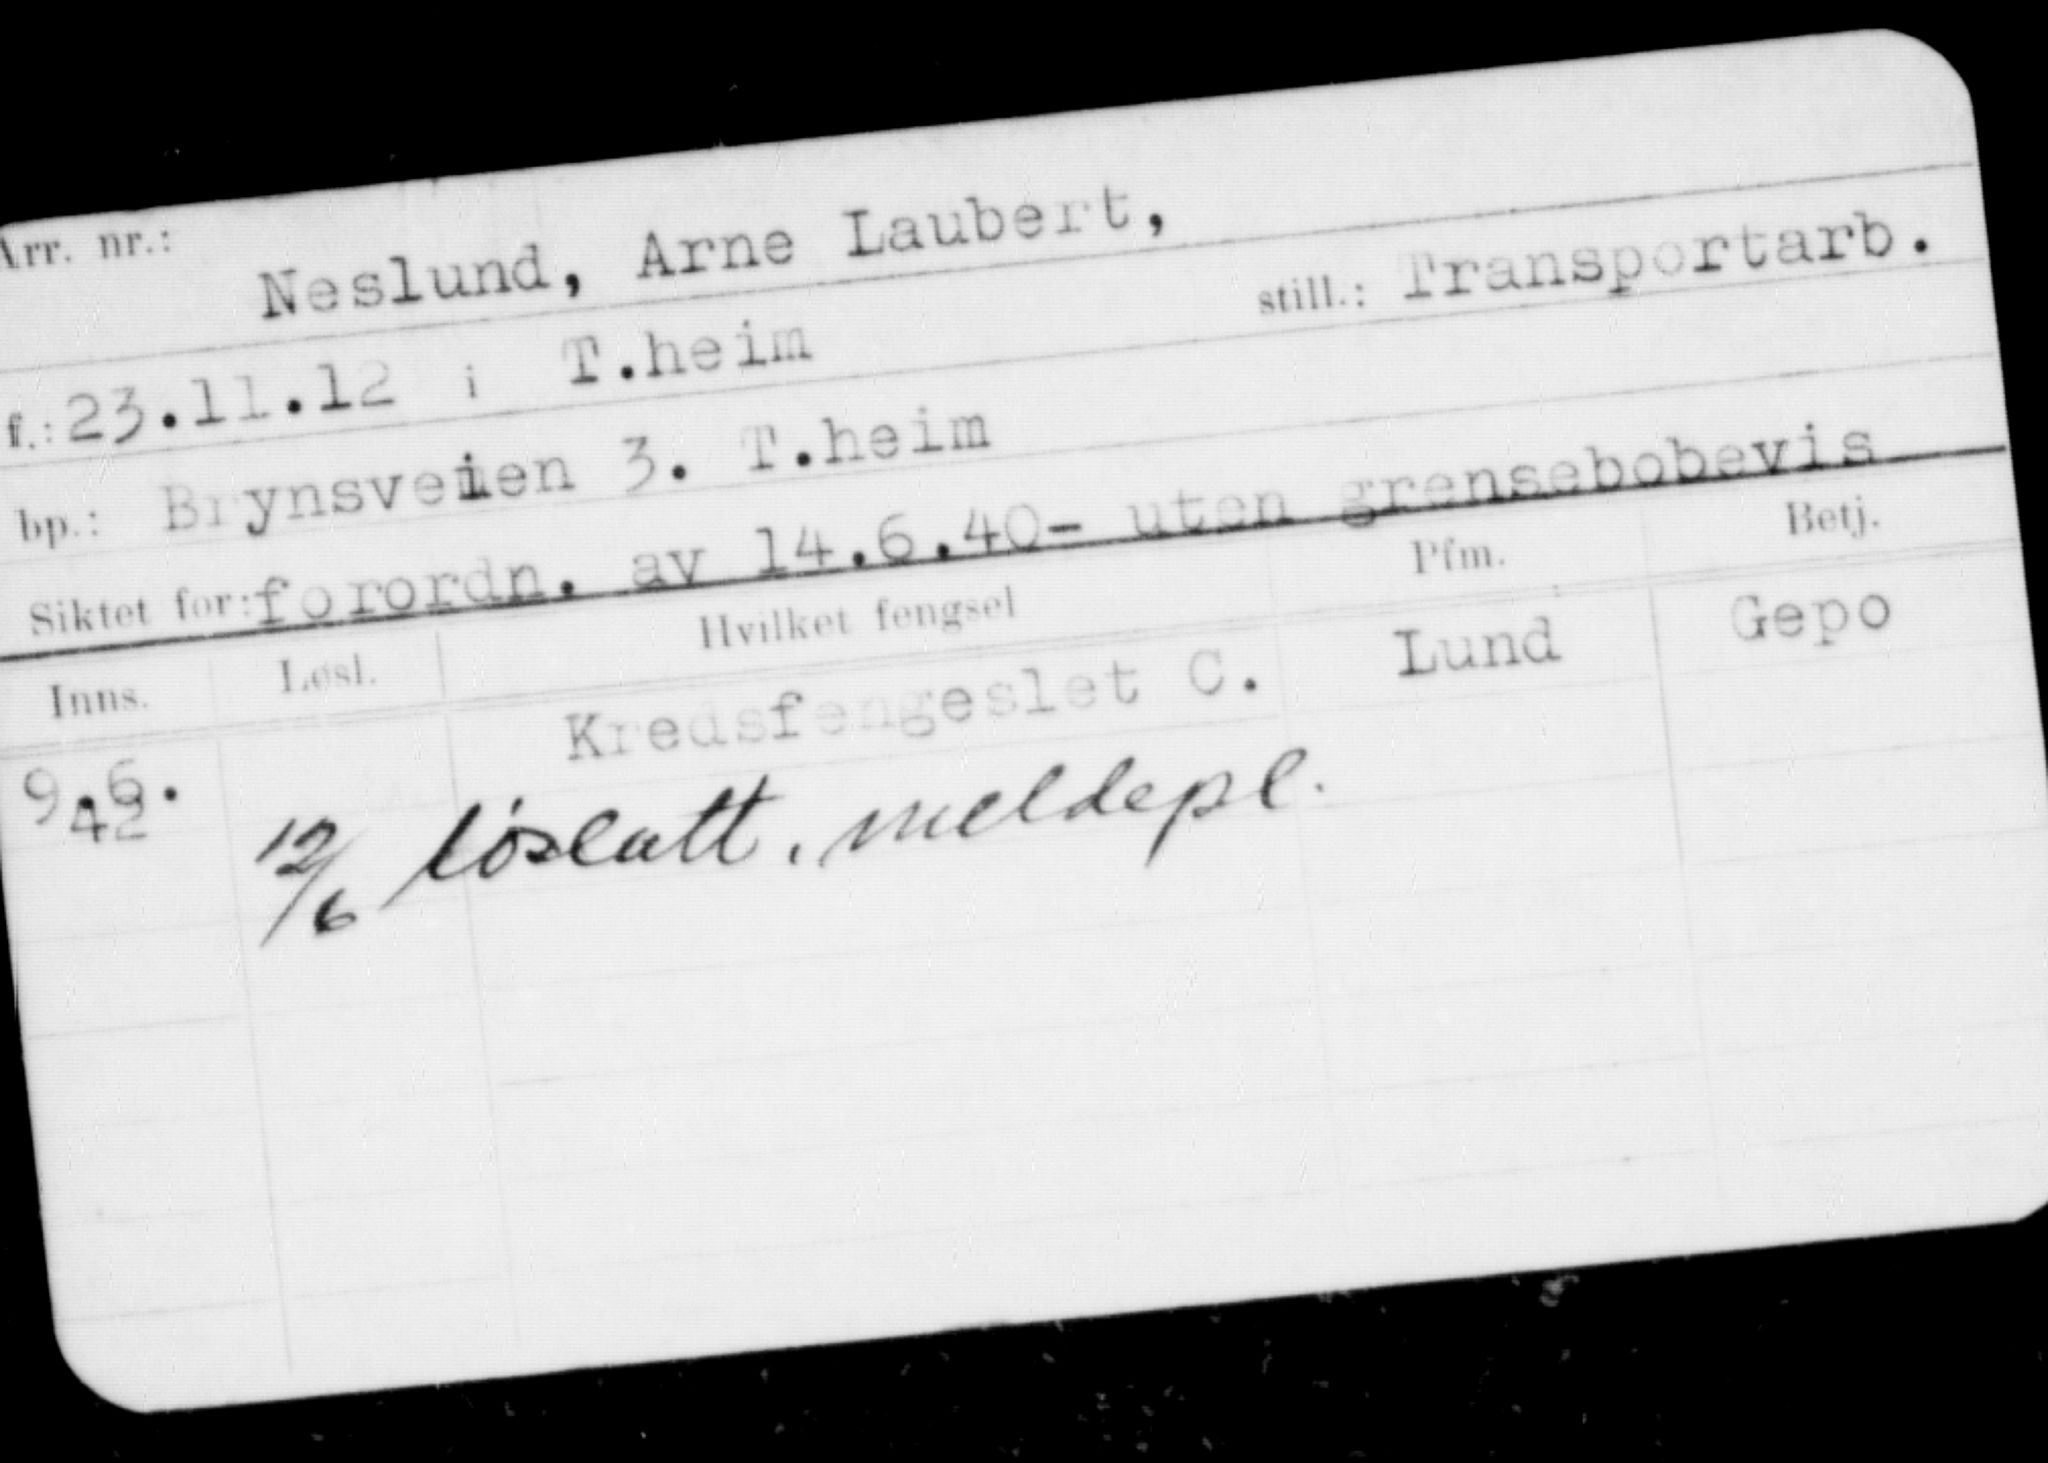 Arr. nr.: Neslund, Arne Laubert,
f.: 23.11.12 i T.heim still.: Transportarb.
bp.: Brynsveien 3. T.heim
Siktet for: forordn. av 14.6.40- uten grensebobevis
Inns. Løsl. Hvilket fengsel Pfm. Betj.
9.6. Kredsfengeslet C. Lund Gepo
42
12/6 løslatt, meldepl.